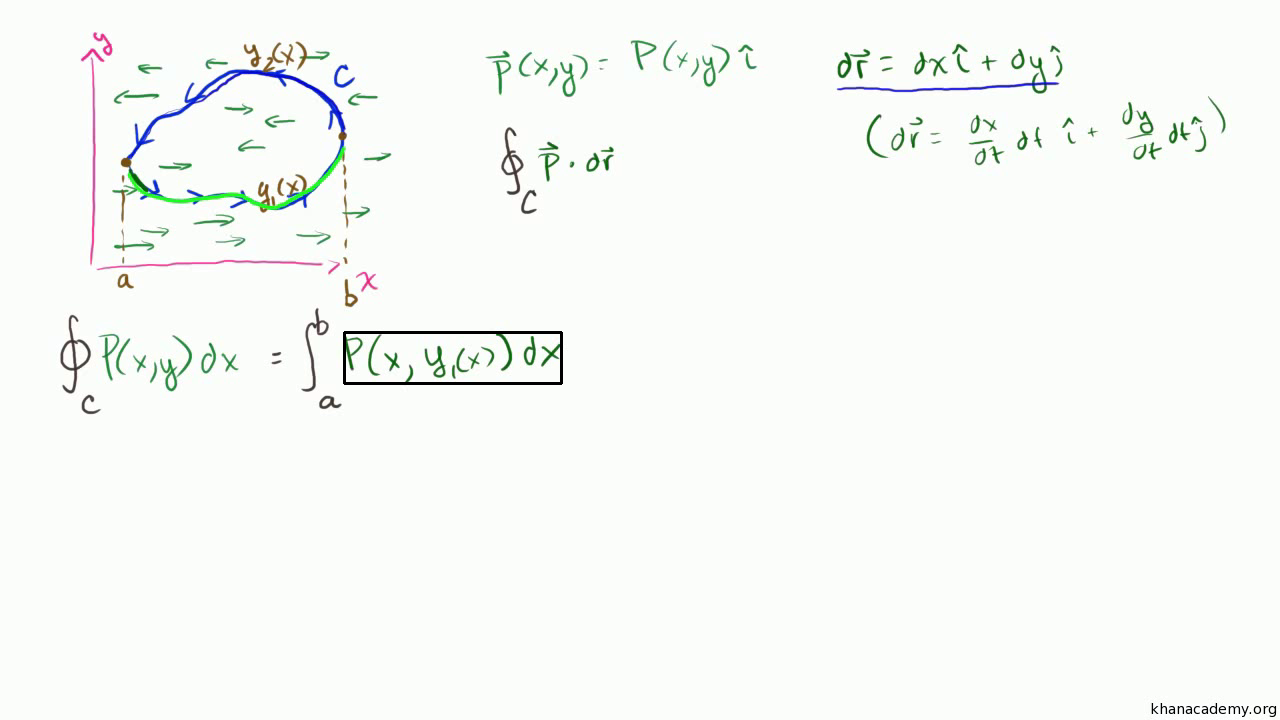 y
y₂(x)
C
y₁(x)
a
b
x
p⃗(x,y) = P(x,y) î
dr⃗ = dx î + dy ĵ
(dr⃗ = dx/dt dt î + dy/dt dt ĵ)
∮_C p⃗ · dr⃗
∮_C P(x,y) dx = ∫_a^b P(x, y₁(x)) dx
khanacademy.org